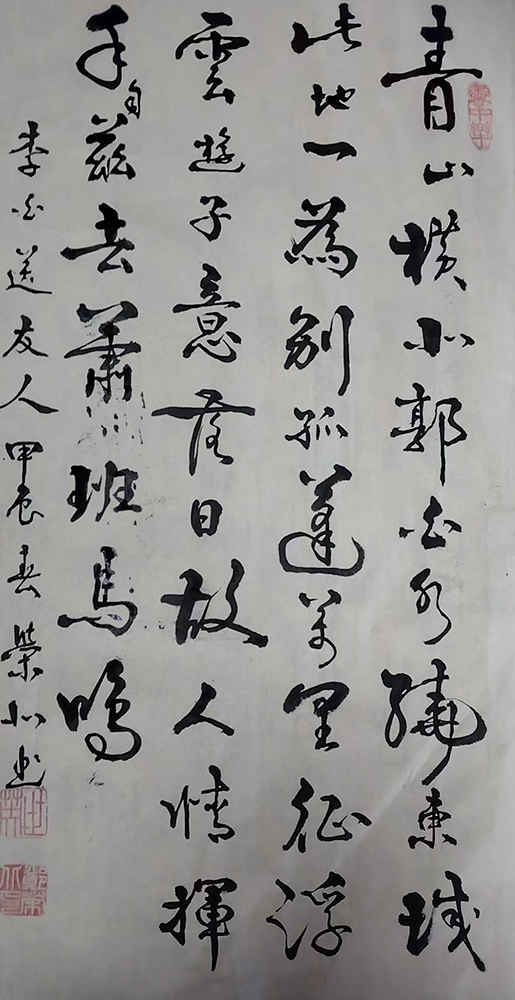 青山横北郭白水繞東城
此地一為别孤蓬万里征浮
雲遊子意落日故人情揮
手自茲去蕭〻班馬鳴
李白送友人甲辰春榮北書